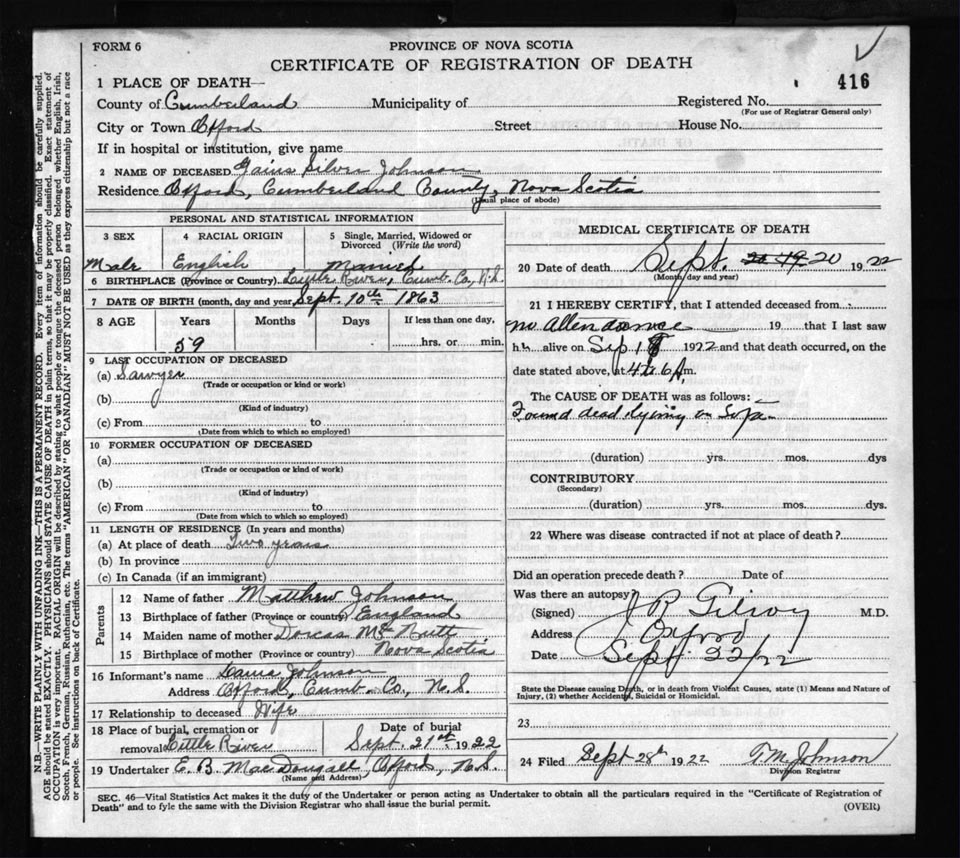 FORM 6
PROVINCE OF NOVA SCOTIA
CERTIFICATE OF REGISTRATION OF DEATH
416
1 PLACE OF DEATH—
County of Cumberland Municipality of Registered No.
(For use of Registrar General only)
City or Town Oxford Street House No.
If in hospital or institution, give name
2 NAME OF DECEASED Gaius Silver Johnson
Residence Oxford, Cumberland County, Nova Scotia
(Usual place of abode)
PERSONAL AND STATISTICAL INFORMATION
3 SEX 4 RACIAL ORIGIN 5 Single, Married, Widowed or Divorced (Write the word)
Male English Married
6 BIRTHPLACE (Province or Country). Little River, Cumb. Co, N.S.
7 DATE OF BIRTH (month, day and year) Sept. 10th 1863
8 AGE Years Months Days If less than one day,
59 hrs. or min.
9 LAST OCCUPATION OF DECEASED
(a) Sawyer
(Trade or occupation or kind or work)
(b)
(Kind of industry)
(c) From to
(Date from which to which so employed)
10 FORMER OCCUPATION OF DECEASED
(a)
(Trade or occupation or kind of work)
(b)
(Kind of industry)
(c) From to
(Date from which to which so employed)
11 LENGTH OF RESIDENCE (In years and months)
(a) At place of death Two years
(b) In province
(c) In Canada (if an immigrant)
Parents
12 Name of father Matthew Johnson
13 Birthplace of father (Province or country) England
14 Maiden name of mother Dorcas Mc Nutt
15 Birthplace of mother (Province or country) Nova Scotia
16 Informant's name Johnson
Address Oxford, Cumb. Co., N.S.
17 Relationship to deceased Wife
18 Place of burial, cremation or removal Little River Date of burial Sept. 21st 1922
19 Undertaker E. B. MacDougall Oxford, N.S.
(Name and Address)
MEDICAL CERTIFICATE OF DEATH
20 Date of death Sept. 20 1922
(Month, day and year)
21 I HEREBY CERTIFY, that I attended deceased from
no Attendance 19 that I last saw
h alive on Sep 1922 and that death occurred, on the
date stated above, at 4 to 6 A m.
The CAUSE OF DEATH was as follows:
Found dead lying on Sofa
(duration) yrs. mos. dys
CONTRIBUTORY
(Secondary)
(duration) yrs. mos. dys.
22 Where was disease contracted if not at place of death?
Did an operation precede death? Date of
Was there an autopsy
(Signed) J R Gilroy M.D.
Address Oxford
Date Sept. 22/22
State the Disease causing Death, or in death from Violent Causes, state (1) Means and Nature of
Injury, (2) whether Accidental, Suicidal or Homicidal.
23
24 Filed Sept 28th 1922 T. M. Johnson
Division Registrar
SEC. 46—Vital Statistics Act makes it the duty of the Undertaker or person acting as Undertaker to obtain all the particulars required in the "Certificate of Registration of
Death" and to fyle the same with the Division Registrar who shall issue the burial permit.
(OVER)
N.B.—WRITE PLAINLY WITH UNFADING INK—THIS IS A PERMANENT RECORD. Every item of information should be carefully supplied.
AGE should be stated EXACTLY. PHYSICIANS should STATE CAUSE OF DEATH in plain terms, so that it may be properly classified. Exact statement of
OCCUPATION is very important. RACIAL ORIGIN will be described by stating to what people or tongue the deceased person belonged whether English, Irish,
Scotch, French, German, Russian, Ruthenian, etc. The terms "AMERICAN" OR "CANADIAN" MUST NOT BE USED as they express citizenship but not a race
or people. See instructions on back of Certificate.